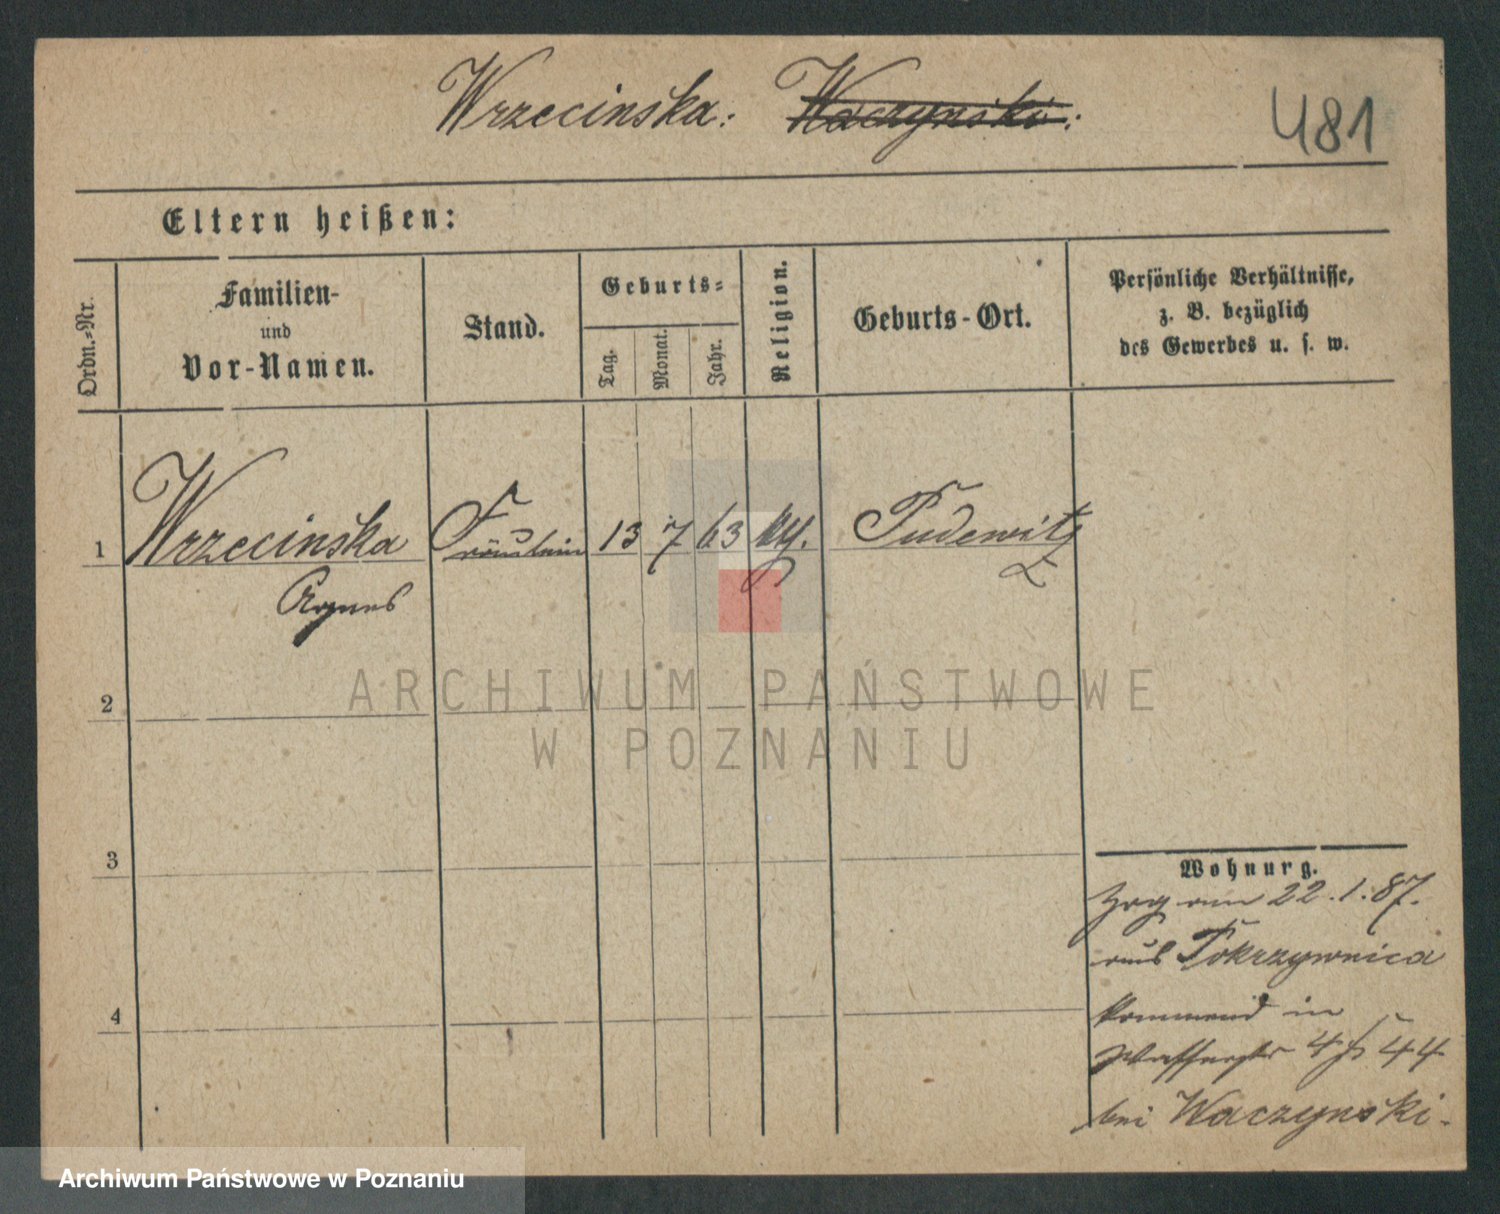 Wrzecinska: Waczynski:
481
Eltern heißen:
Ordn.-Nr.
Familien-
und
Vor-Namen.
Stand.
Geburts-
Tag.
Monat.
Jahr.
Religion.
Geburts-Ort.
Persönliche Verhältnisse,
z. B. bezüglich
des Gewerbes u. s. w.
1 Wrzecinska Fräulein 13 7 63 Pudewitz
Agnes
2
3
4
Wohnung.
Zog am 22.1.87.
aus Pokrzywnica
kommend in
Wasserstr 44
bei Waczynski.
ARCHIWUM PAŃSTWOWE
W POZNANIU
Archiwum Państwowe w Poznaniu